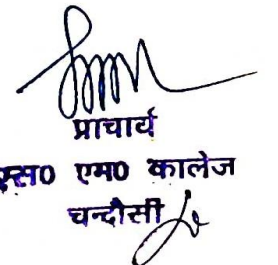 प्राचार्य
एस० एम० कालेज
चन्दौसी